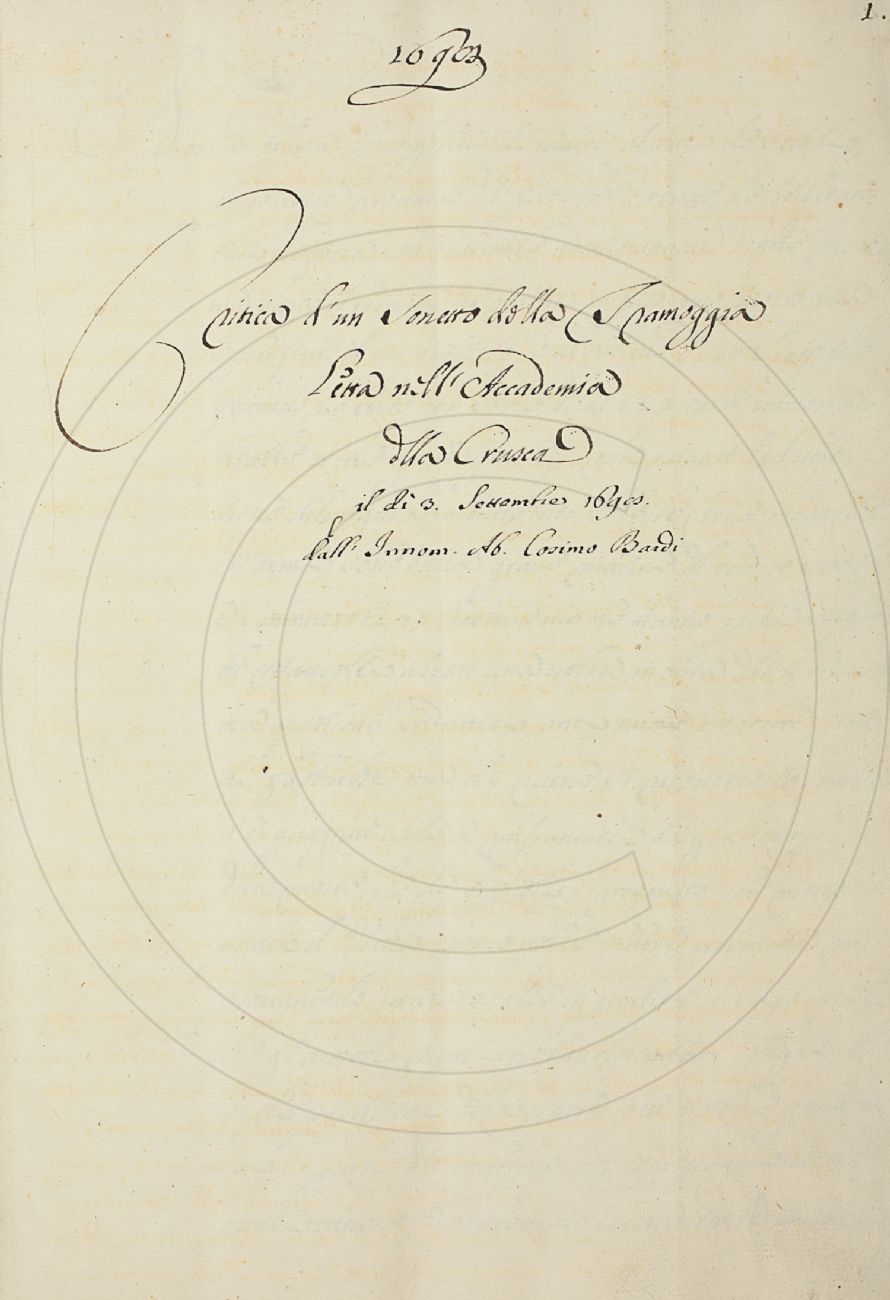 1.
Critica d'un Sonetto della Tramoggia
Letta nell'Accademia
della Crusca
il dì 3. Settembre
dall' Innom. Ab. Cosimo Bardi